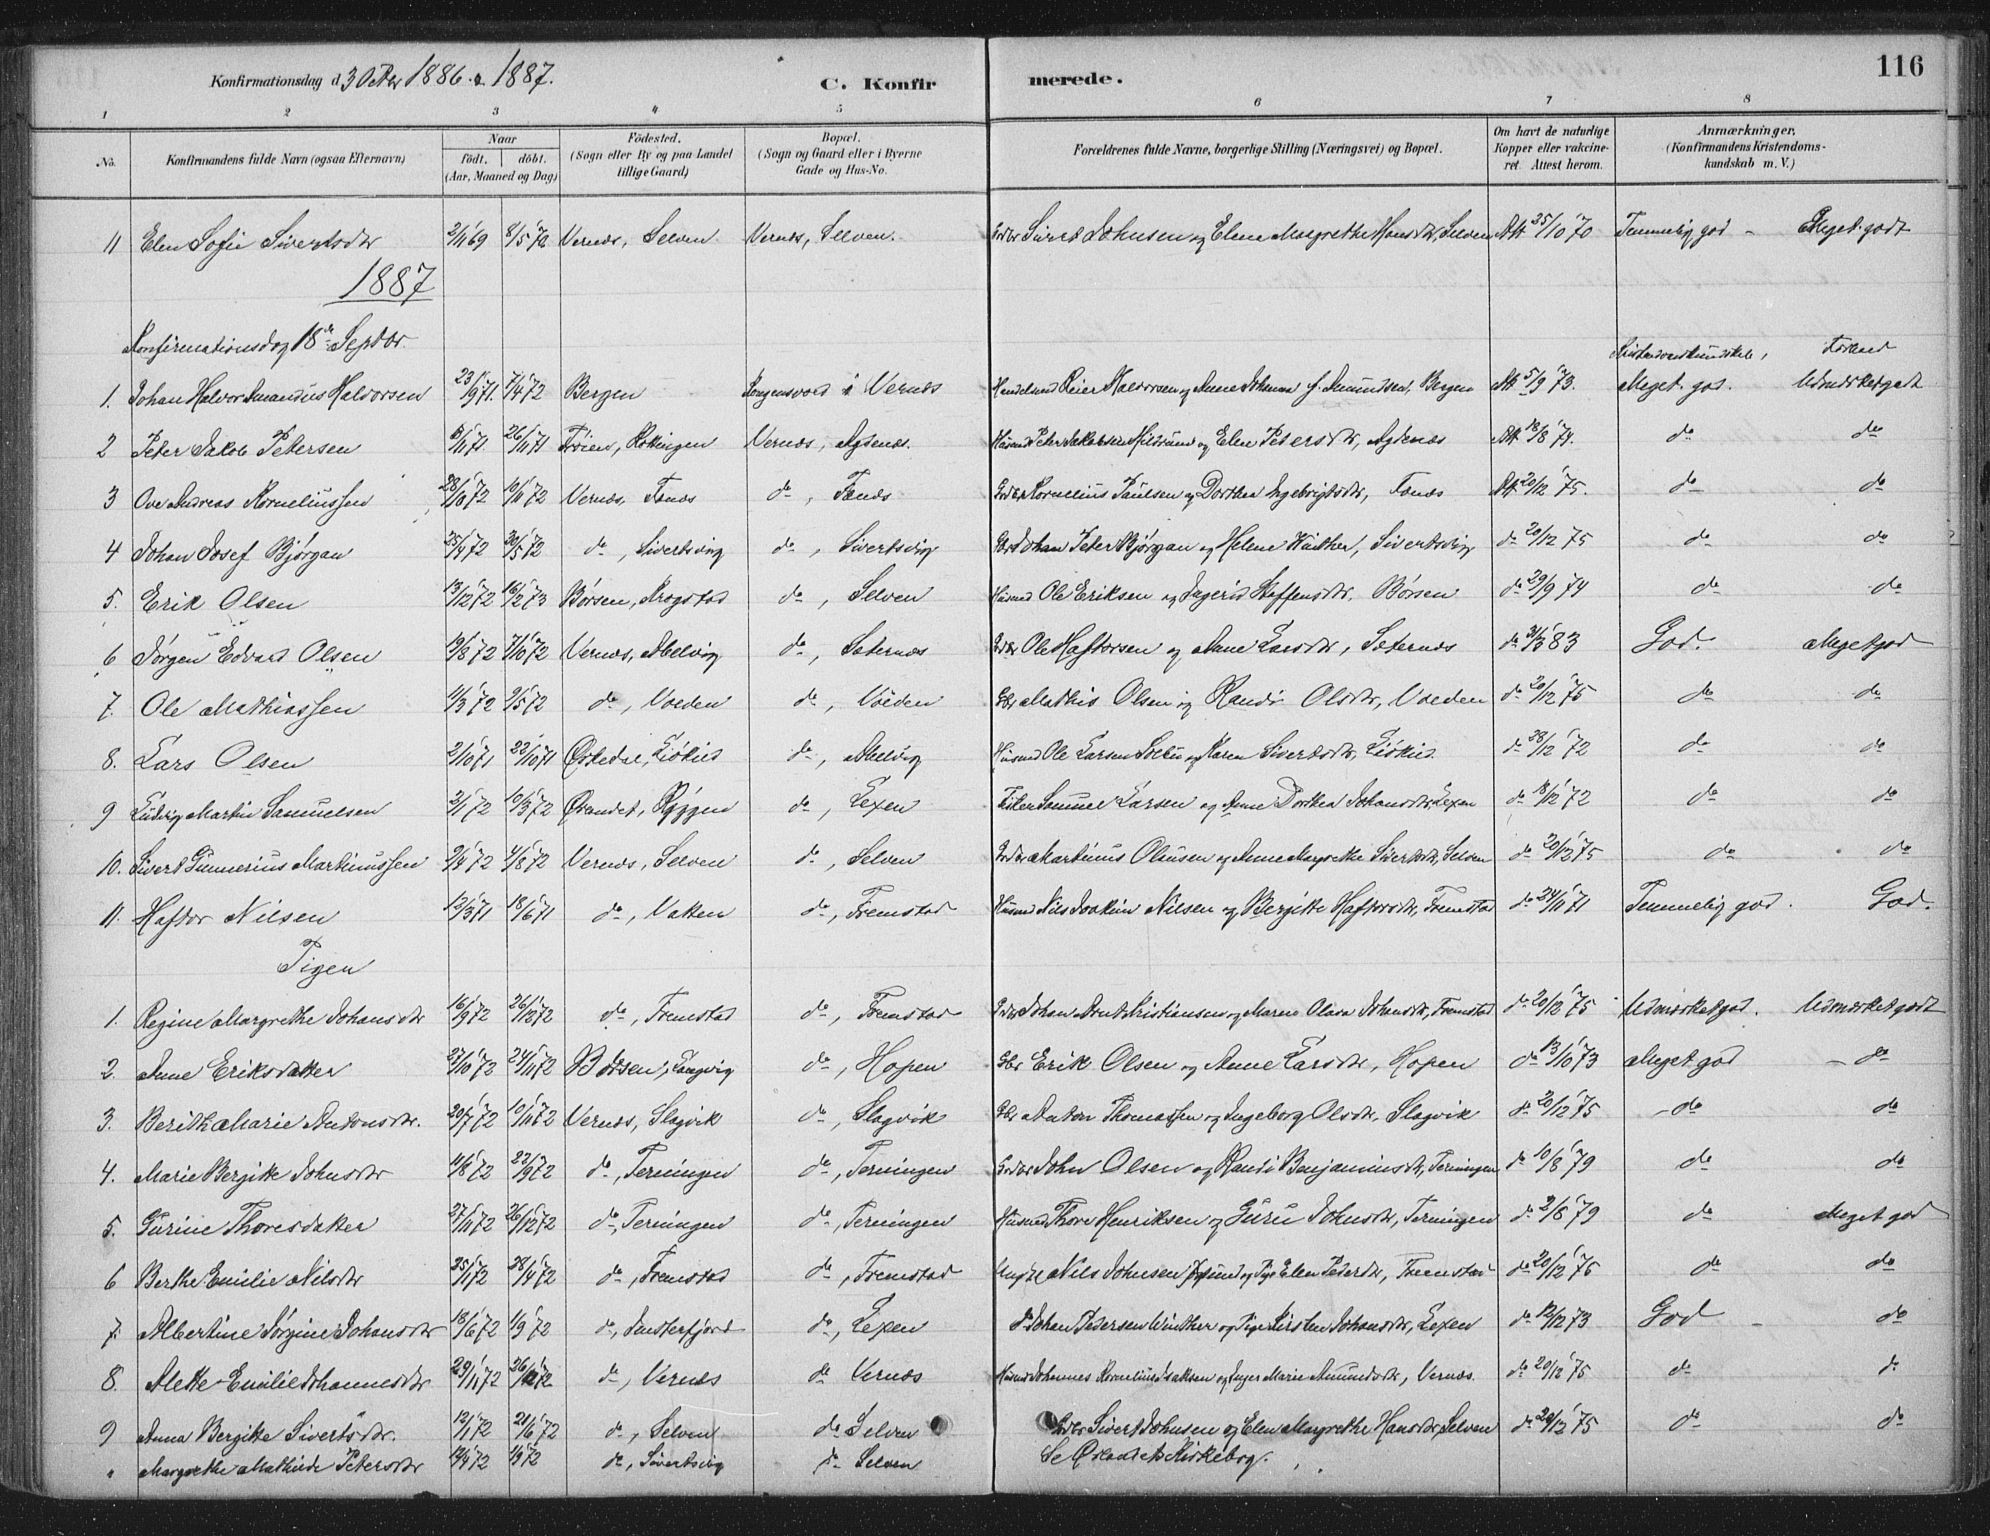 Konfirmationsdag d 3 Octbr 1886 & 1887.
C. Konfirmerede.
116
1 2 3 4 5 6 7 8
No. Konfirmandens fulde Navn (ogsaa Efternavn) Naar født. døbt. (Aar, Maaned og Dag) Födested. (Sogn eller By og paa Landet tillige Gaard) Bopæl. (Sogn og Gaard eller i Byerne Gade og Hus-No. Forældrenes fulde Navne, borgerlige Stilling (Næringsvei) og Bopæl. Om havt de naturlige Kopper eller vakcineret. Attest herom. Anmærkninger. (Konfirmandens Kristendomskundskab m. V.)
11 Elen Sofie Sivertsdtr 2/11 69 8/5 '70 Vernæs, Selven Vernæs, Selven. Sivert Johnsen og Elen Margrethe Hansdtr, Selven Att 25/10 '70 Temmelig god – Meget godt
1887
Konfirmationsdag 18de Septbr.
Kristendomskundskab, Forhold
1. Johan Halvor Amandus Halvorsen 23/9 '71. 7/4 '72 Bergen Kongensvold i Vernæs Handelsmd Reier Halvorsen og Anne Johanna f. Amundsen, Bergen Att 5/9 '73. Meget god. Udmærket godt
2 Peter Jakob Petersen 3/11 '71. 26/11 '71 Frøien, Vernæs, Agdenæs. Husmd Peter Jakobsen og Elen Petersdtr, Agdenæs Att 18/8 '74. do do
3 Ove Andreas Korneliussen 28/10 '72 10/11 '72 Vernæs, Fanæs do, Fanæs Kornelius Paulsen og Dorthea Ingebrigtsdtr, Fanæs Att 20/12 '75. do do
4 Johan Josef Bjørgan 25/4 '72 30/5 '72 do, Sivertsvig do, Sivertsvig Gbr Johan Peter Bjørgan og Helene Winther, Sivertsvig do 20/12 '75 do do
5. Erik Olsen 13/12 '72 16/2 '73 Børsen, Krogstad do, Selven Husmd Ole Eriksen og Ingerid Steffensdtr. Børsen do 29/9 '74 do do
6 Jørgen Edvard Olsen 19/8 '72 7/10 '72 Vernæs, Melvig do, Sæternæs Ole Haftorsen og Anne Larsdtr, Sæternæs do 31/3 '83 God. Meget god
7. Ole Mathiassen 11/3 '72 9/5 '72 do, Volden do, Volden Gbr Mathis Olsen og Randi Olsdtr, Volden do 20/12 '75 do do
8. Lars Olsen 2/10 '71 22/10 '71 Ørkedal, do, Melvig Husmd Ole Larsen og Karen Sivertsdtr, do 28/12 '72 do do
9 Ludvig Martin Samuelsen 2/1 '72 10/3 '72 Ørlandet, Ryggen do, Lexen Fisker Samuel Larsen og Anne Dorthea Johansdtr, Lexen do 18/12 '72 do do
10. Sivert Gunnerius Martinussen 2/4 '72 4/8 '72 Vernæs, Selven do, Selven Martinus Olausen og Anne Margrethe Sivertsdtr, Selven do 20/12 '75 do do
11. Haftor Nilsen 12/3 '71 18/6 '71 do, Vatten do, Fremstad Husmd Nils Joakim Nilsen og Bergitte Haftorsdtr, Fremstad do 24/11 '71 Temmelig god. God.
Piger
1. Regine Margrethe Johansdtr 16/9 '72 26/12 '72 do, Fremstad do, Fremstad Johan Arnt Kristiansen og Maren Olava Johansdtr, Fremstad do 20/12 '75 Udmærket god. Udmærket godt
2. Anne Eriksdatter 27/10 '72 24/11 '72 Børsen, Langvig do, Hopen Gbr Erik Olsen og Anne Larsdtr, Hopen do 13/10 '73 Meget god – do
3. Berith Marie Antonsdtr. 20/7 '72 10/11 '72 Vernæs, Slagvik do, Slagvik Gbr Anton Thomassen og Ingeborg Olsdtr, Slagvik do 20/12 '75 – do do
4. Marie Bergitte Johnsdtr 11/8 '72 22/9 '72 do, Terningen do, Terningen John Olsen og Randi Benjaminsdtr, Terningen do 10/8 '79 do do
5. Gurine Thoresdatter 27/11 '72 26/12 '72 do, Terningen do, Terningen Husmd Thore Henriksen og Guru Johnsdtr, Terningen do 2/8 '79 do Meget god
6 Berthe Emilie Nilsdtr 25/1 '72 28/4 '72 do, Fremstad do, Fremstad Ungkl Nils Johnsen og Pige Elen Pedersdtr, Fremstad do 20/12 '75 do do
7. Albertine Jørgine Johansdtr 18/6 '72 1/9 '72 do, Imsterfjord do, Lexen do Johan Pedersen Winther og Pige Kirsten Johansdtr, Lexen do 12/12 '73 God – do
8. Alette Emilie Johannesdtr 29/11 '72 26/12 '72 do, Vernæs do Vernæs Husmd Johannes Kornelius Isaksen og Inger Marie Amundsdtr, Vernæs. do 20/12 '75 do do
9 Anna Bergitte Sivertsdtr. 12/1 '72 21/6 '72 do, Selven do Selven Sivert Johnsen og Elen Margrethe Hansdtr, Selven do 20/12 '75 do do
" Margrethe Mathilde Petersdtr 14/4 '72 1/9 '72 do, Sivertsvig do Selven Se Ørlandets Kirkebog.